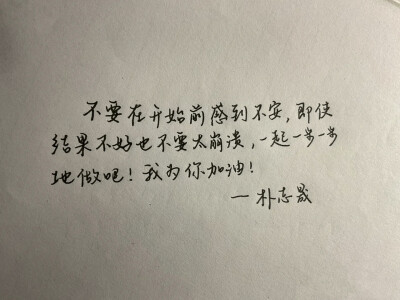 不要在开始前感到不安，即使
结果不好也不要太崩溃，一起一步一步
地做吧！我为你加油！
— 朴志晟